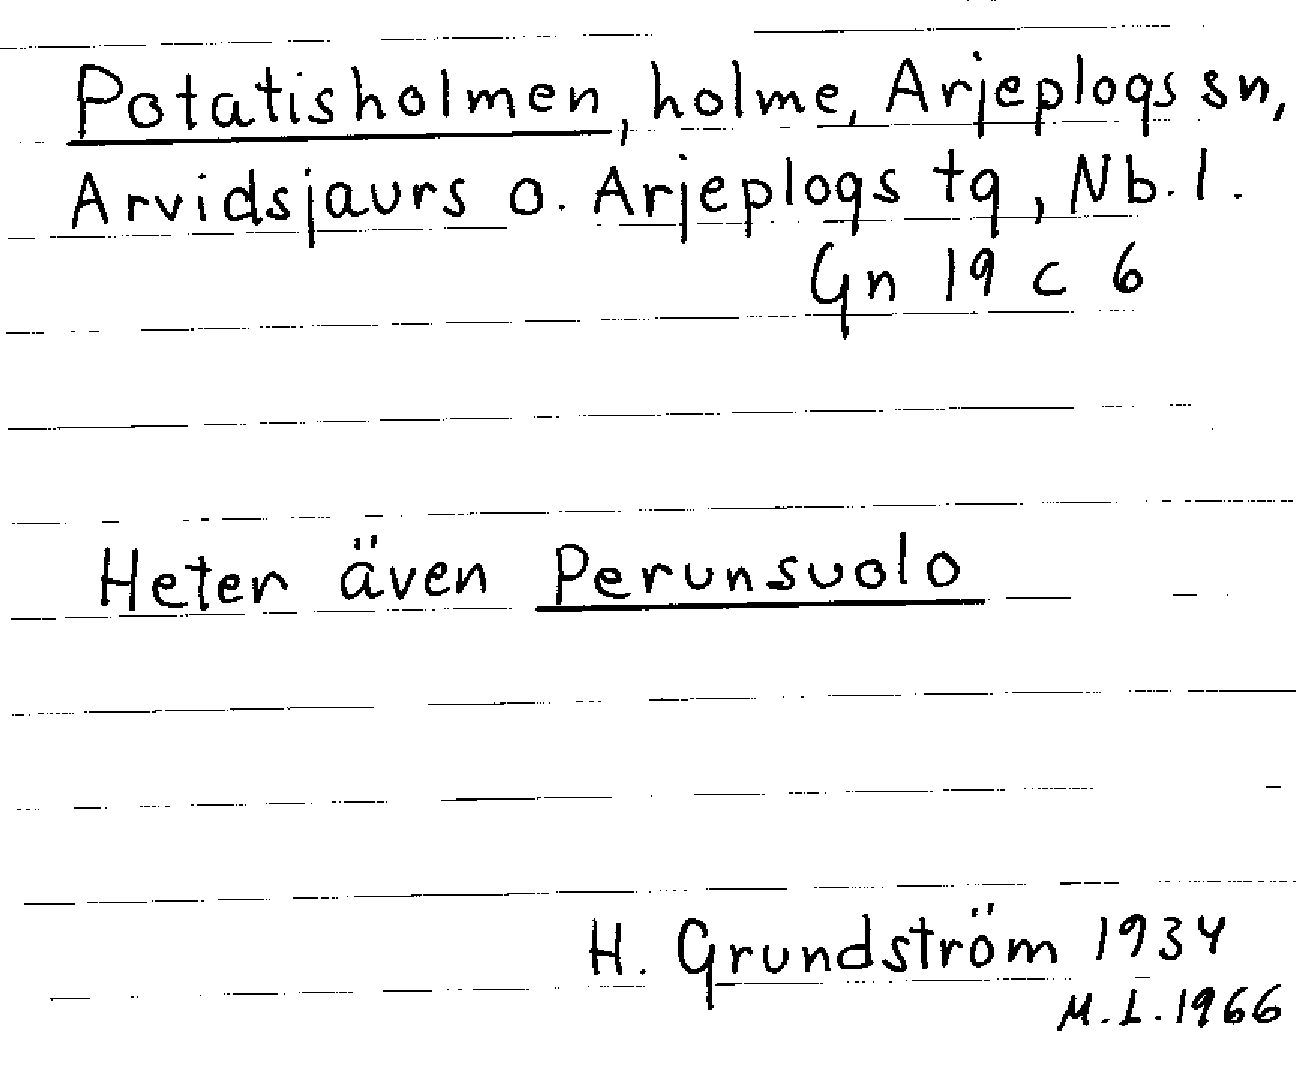 Potatisholmen, holme, Arjeplogs sn,
Arvidsjaurs o. Arjeplogs tg, Nb.l.
Gn 19 c 6
Heter även Perunsuolo
H. Grundström 1934
M.L.1966